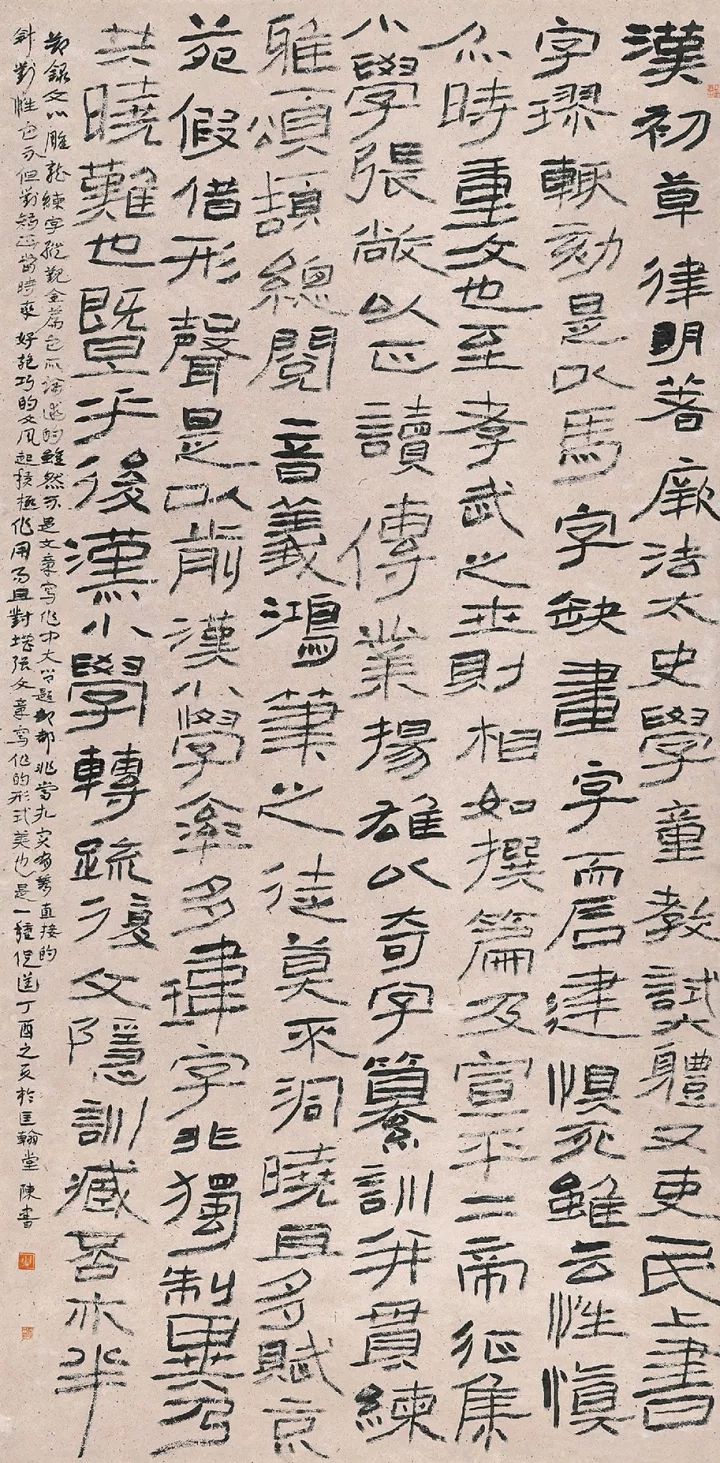 漢初草律明著厥法太史學童教試體又吏民上書
字璆輒劾是以馬字缺畫字而石建惧死雖云性慎
亦時重文也至孝武之世則相如撰篇及宣平二帝征集
小學張敞以正讀傳業揚雄以奇字纂訓并貫練
雅頌頡總閱音義鴻筆之徒莫不洞曉且多賦京
苑假借形聲是以前漢小學率多瑋字非獨制異乃
共曉難也暨乎後漢小學轉疏復文隱訓臧否亦半
節錄文心雕龍練字縱觀全篇它所論述的雖然不是文章寫作中大問題却都非常扎实有着直接的
針對性它不但對矯正當時爱好詭巧的文风起積極作用而且對增强文章寫作的形式美也是一種促進丁酉之夏於匡翰堂陳書